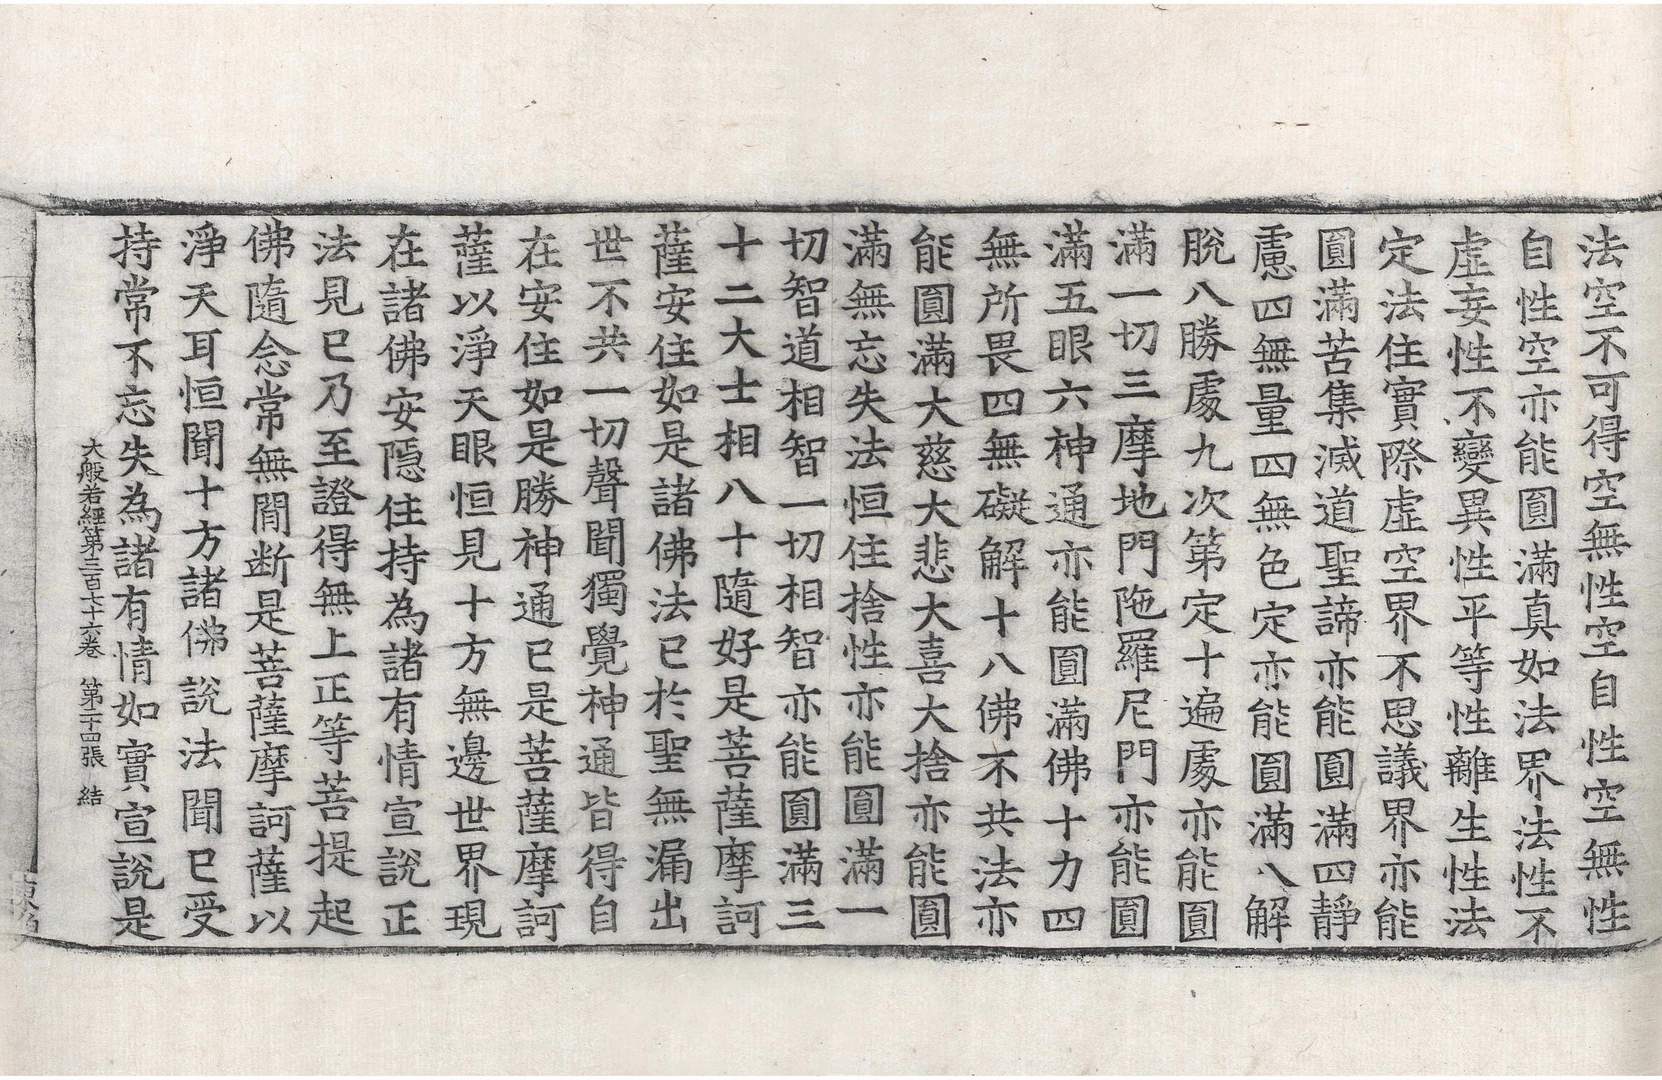 法空不可得空無性空自性空無性
自性空亦能圓滿真如法界法性不
虛妄性不變異性平等性離生性法
定法住實際虛空界不思議界亦能
圓滿苦集滅道聖諦亦能圓滿四靜
慮四無量四無色定亦能圓滿八解
脫八勝處九次第定十遍處亦能圓
滿一切三摩地門陁羅尼門亦能圓
滿五眼六神通亦能圓滿佛十力四
無所畏四無礙解十八佛不共法亦
能圓滿大慈大悲大喜大捨亦能圓
滿無忘失法恒住捨性亦能圓滿一
切智道相智一切相智亦能圓滿三
十二大士相八十隨好是菩薩摩訶
薩安住如是諸佛法已於聖無漏出
世不共一切聲聞獨覺神通皆得自
在安住如是勝神通已是菩薩摩訶
薩以淨天眼恒見十方無邊世界現
在諸佛安隱住持為諸有情宣說正
法見已乃至證得無上正等菩提起
佛隨念常無閒断是菩薩摩訶薩以
淨天耳恒聞十方諸佛說法聞已受
持常不忘失為諸有情如實宣說是
大般若經第三百七十六卷 第二十四張 結